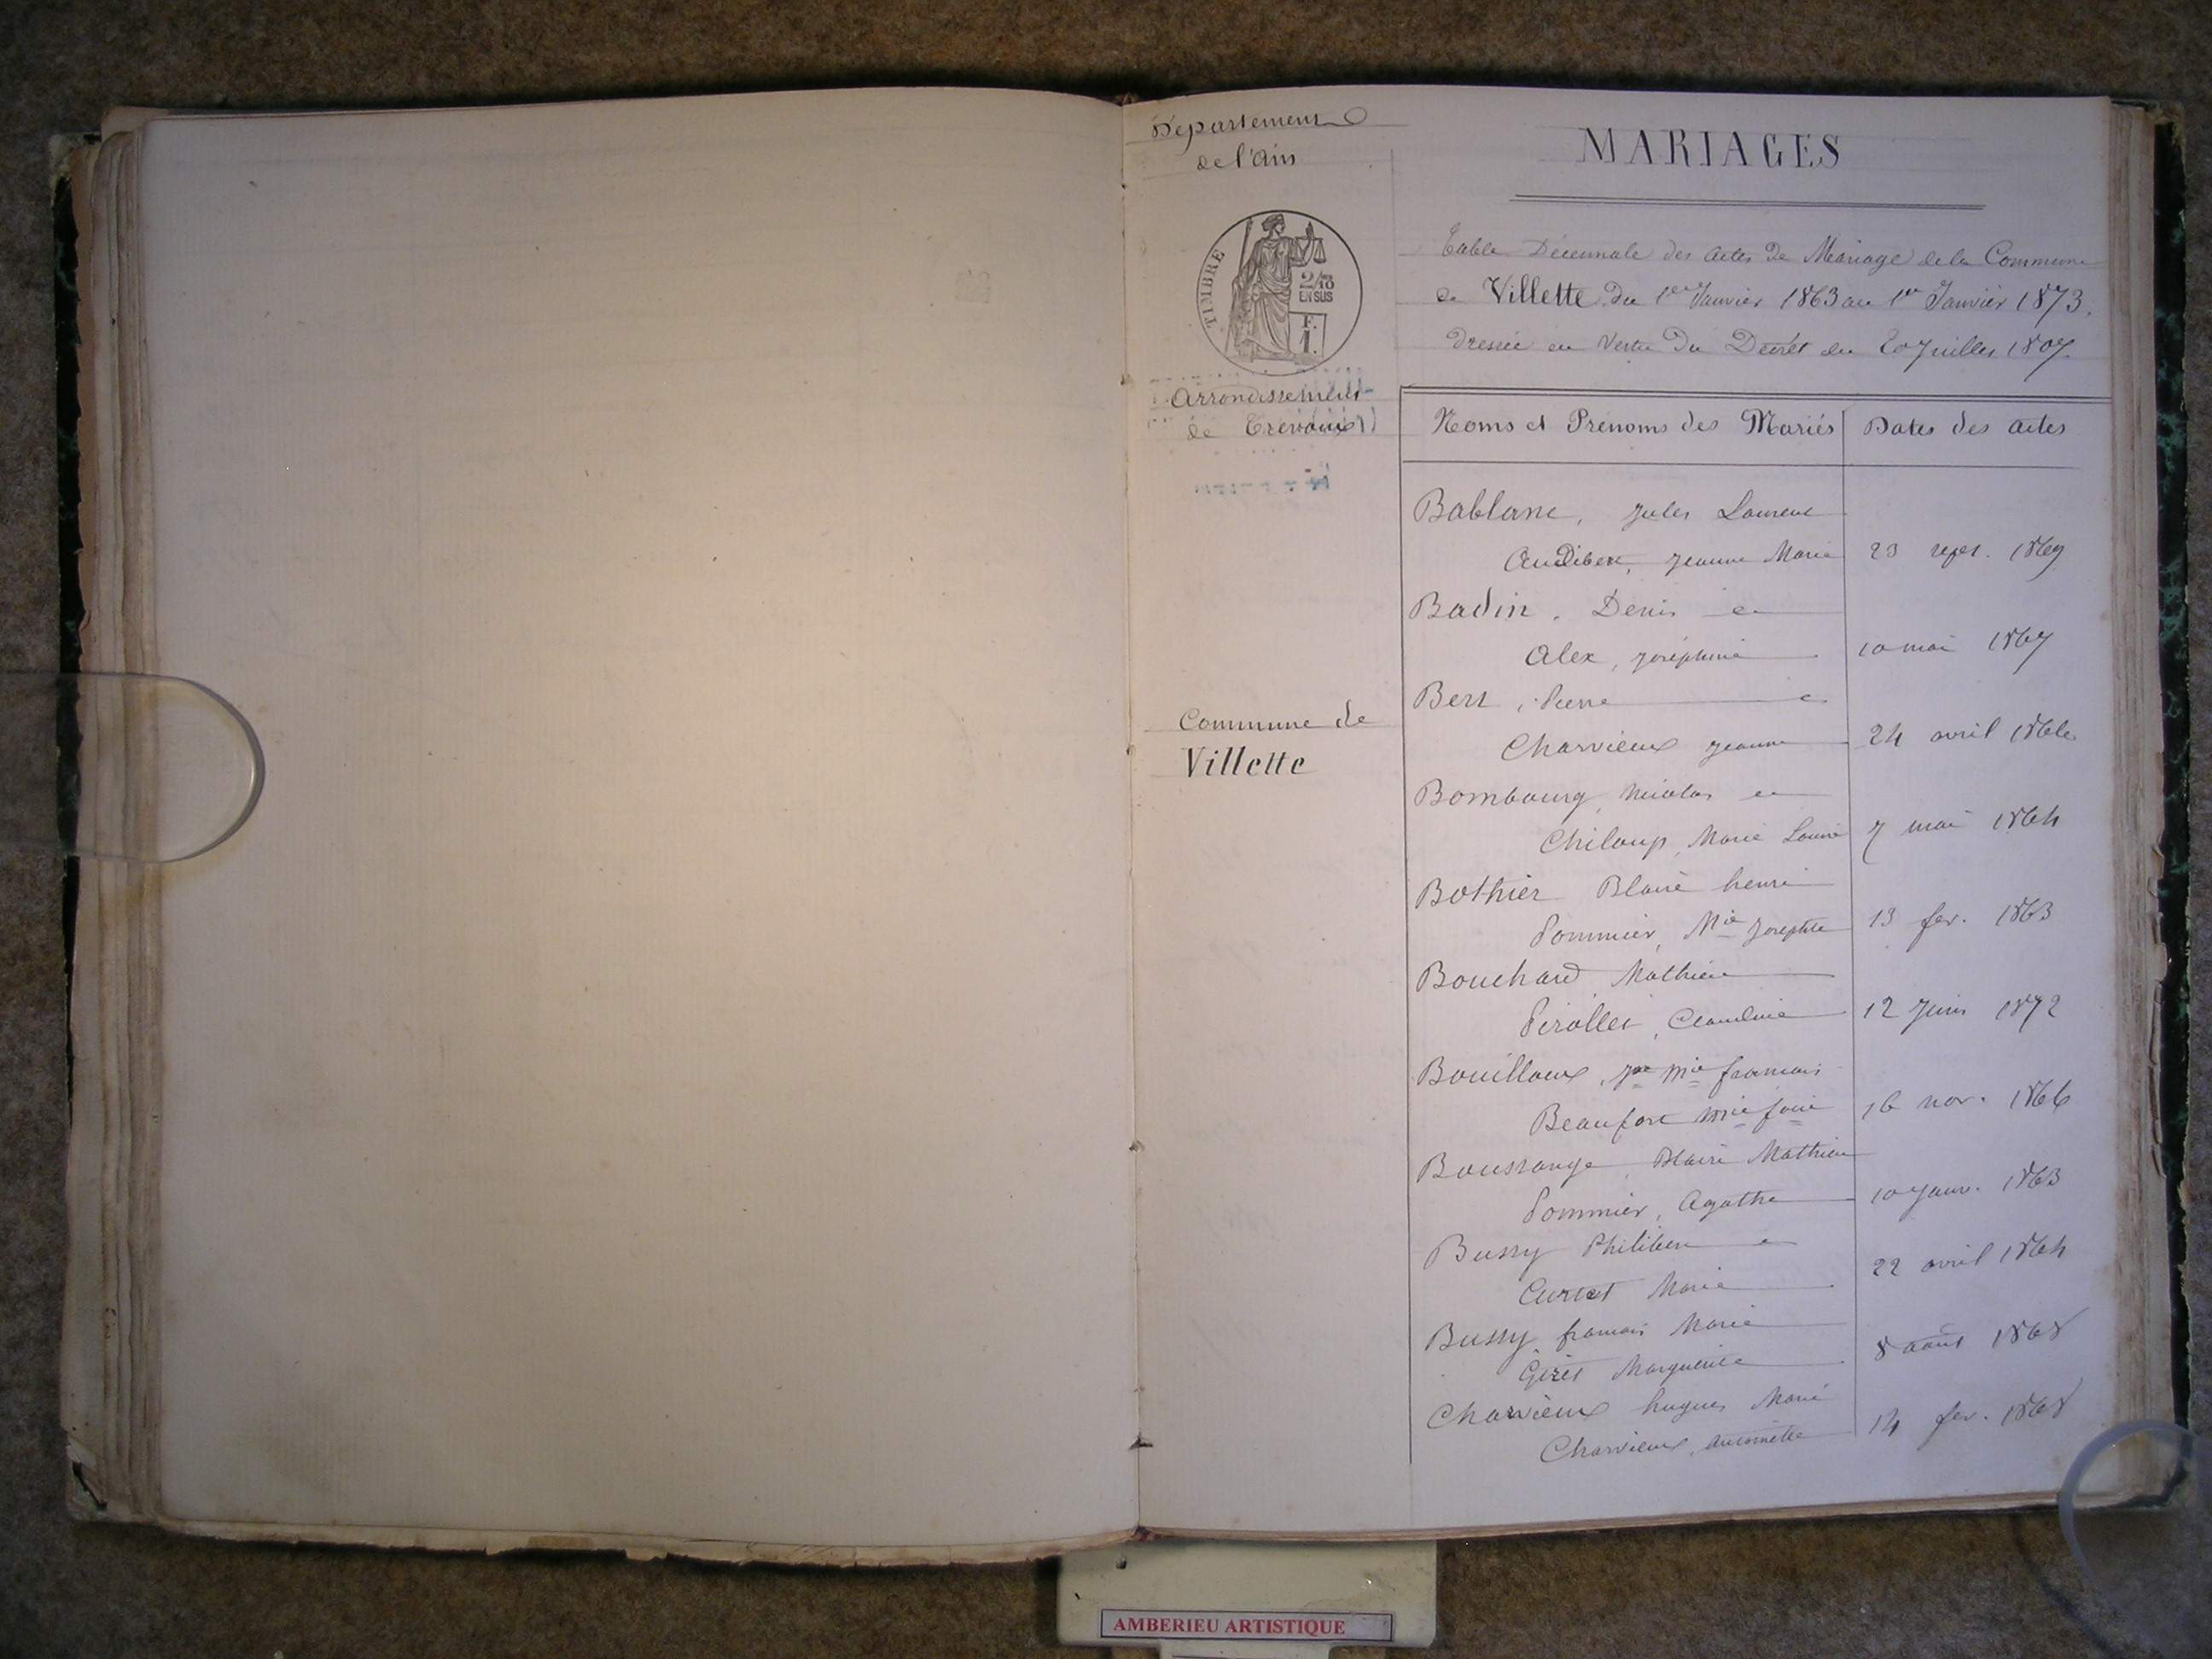 Département
de l'Ain
TIMBRE
2/10
EN SUS
F.
1.
Arrondissement
de Trévoux
Commune de
Villette
MARIAGES
Table Décennale des actes de Mariage de la Commune
de Villette du 1er Janvier 1863 au 1er Janvier 1873.
dressée en Vertu du Décret du 20 Juillet 1807.
Noms et Prénoms des Mariés Dates des actes
Bablanc, Jules Laurent
Audibert, Jeanne Marie 23 sept. 1869
Badin, Denis et
Alex, Joséphine 10 mai 1867
Bert, Pierre et
Charvieux Jeanne 24 avril 1866
Bombourg, Nicolas et
Chiloup, Marie Louise 7 mai 1864
Bothier Blaise henri
Pommier, Mie Josephte 13 fev. 1863
Bouchard Mathieu
Pirollet, Claudine 12 Juin 1872
Bouilloux, Jn Mie francois
Beaufort Mie 16 nov. 1866
Boussange Blaise Mathieu
Pommier, Agathe 10 Janv. 1863
Bussy Philibert et
Curtet Marie 22 avril 1864
Bussy francois Marie
Giret Marguerite 8 aout 1868
Charvieux hugues Marie
Charvieux, antoinette 14 fev. 1868
AMBERIEU ARTISTIQUE